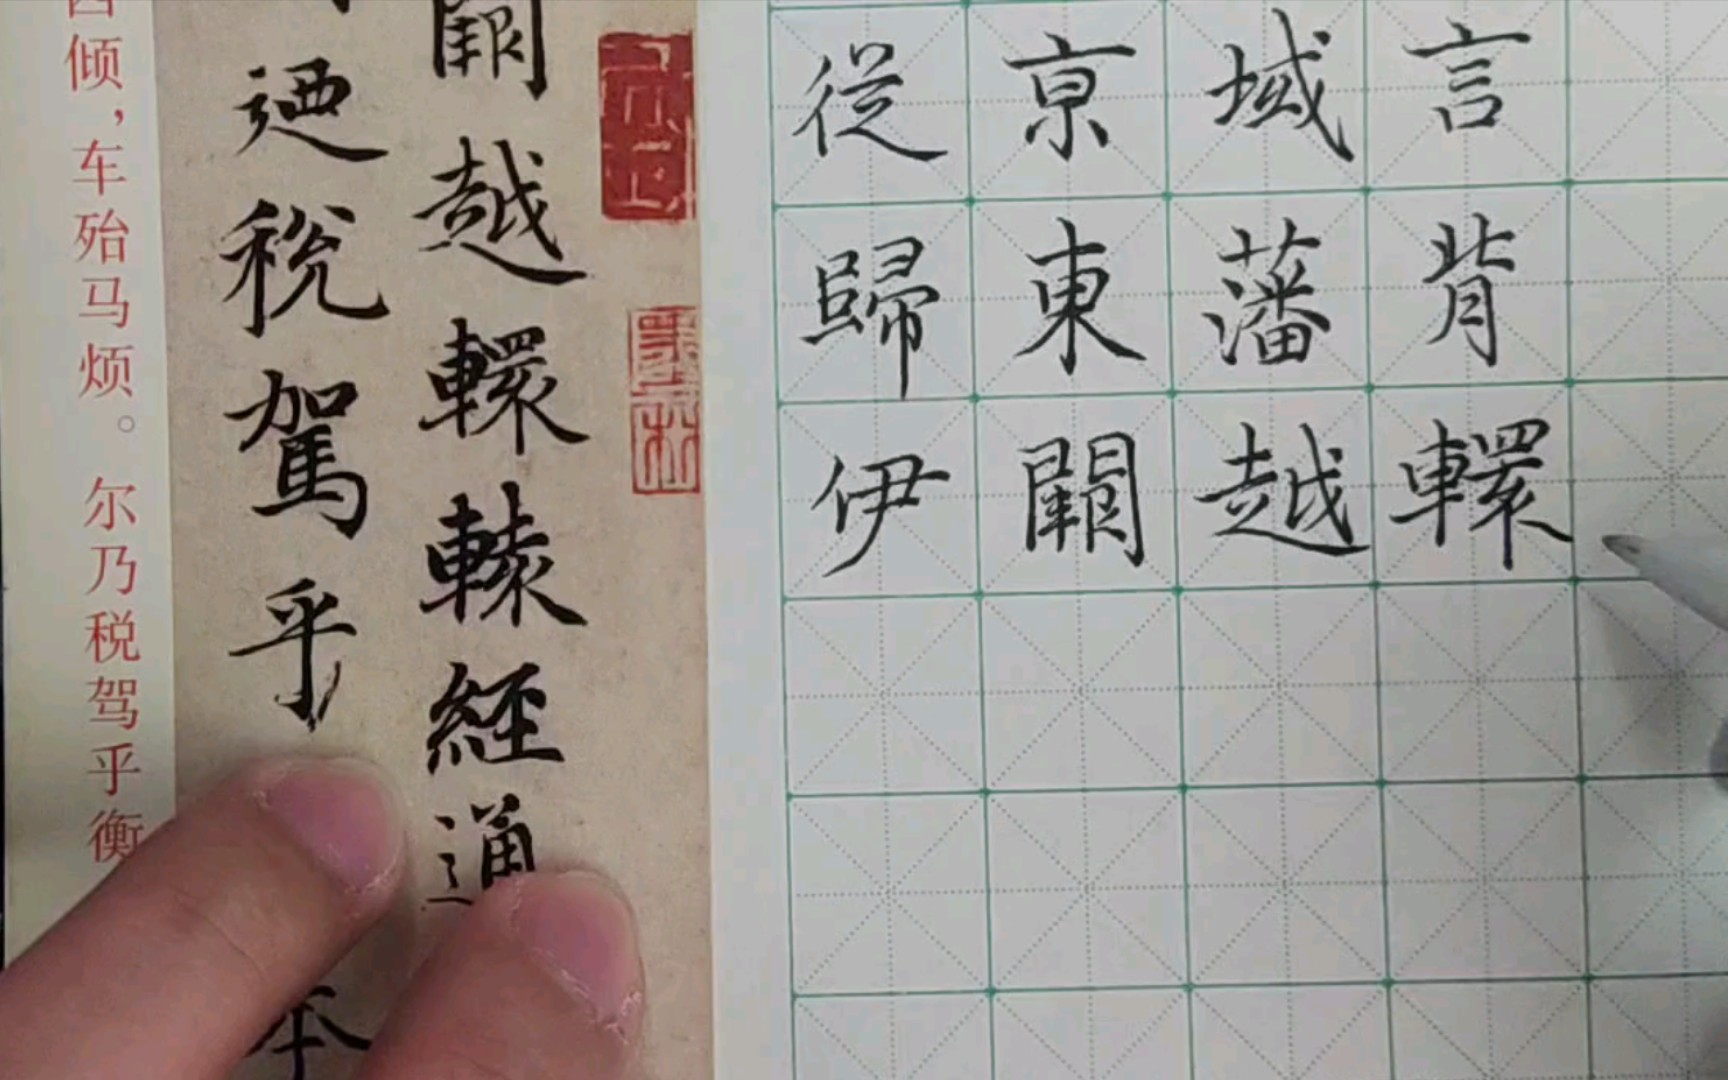 從京域言
歸東藩背
伊闕越轘
闕越轘轅經通
迺稅駕乎
本
倾，车殆马烦。尔乃税驾乎衡